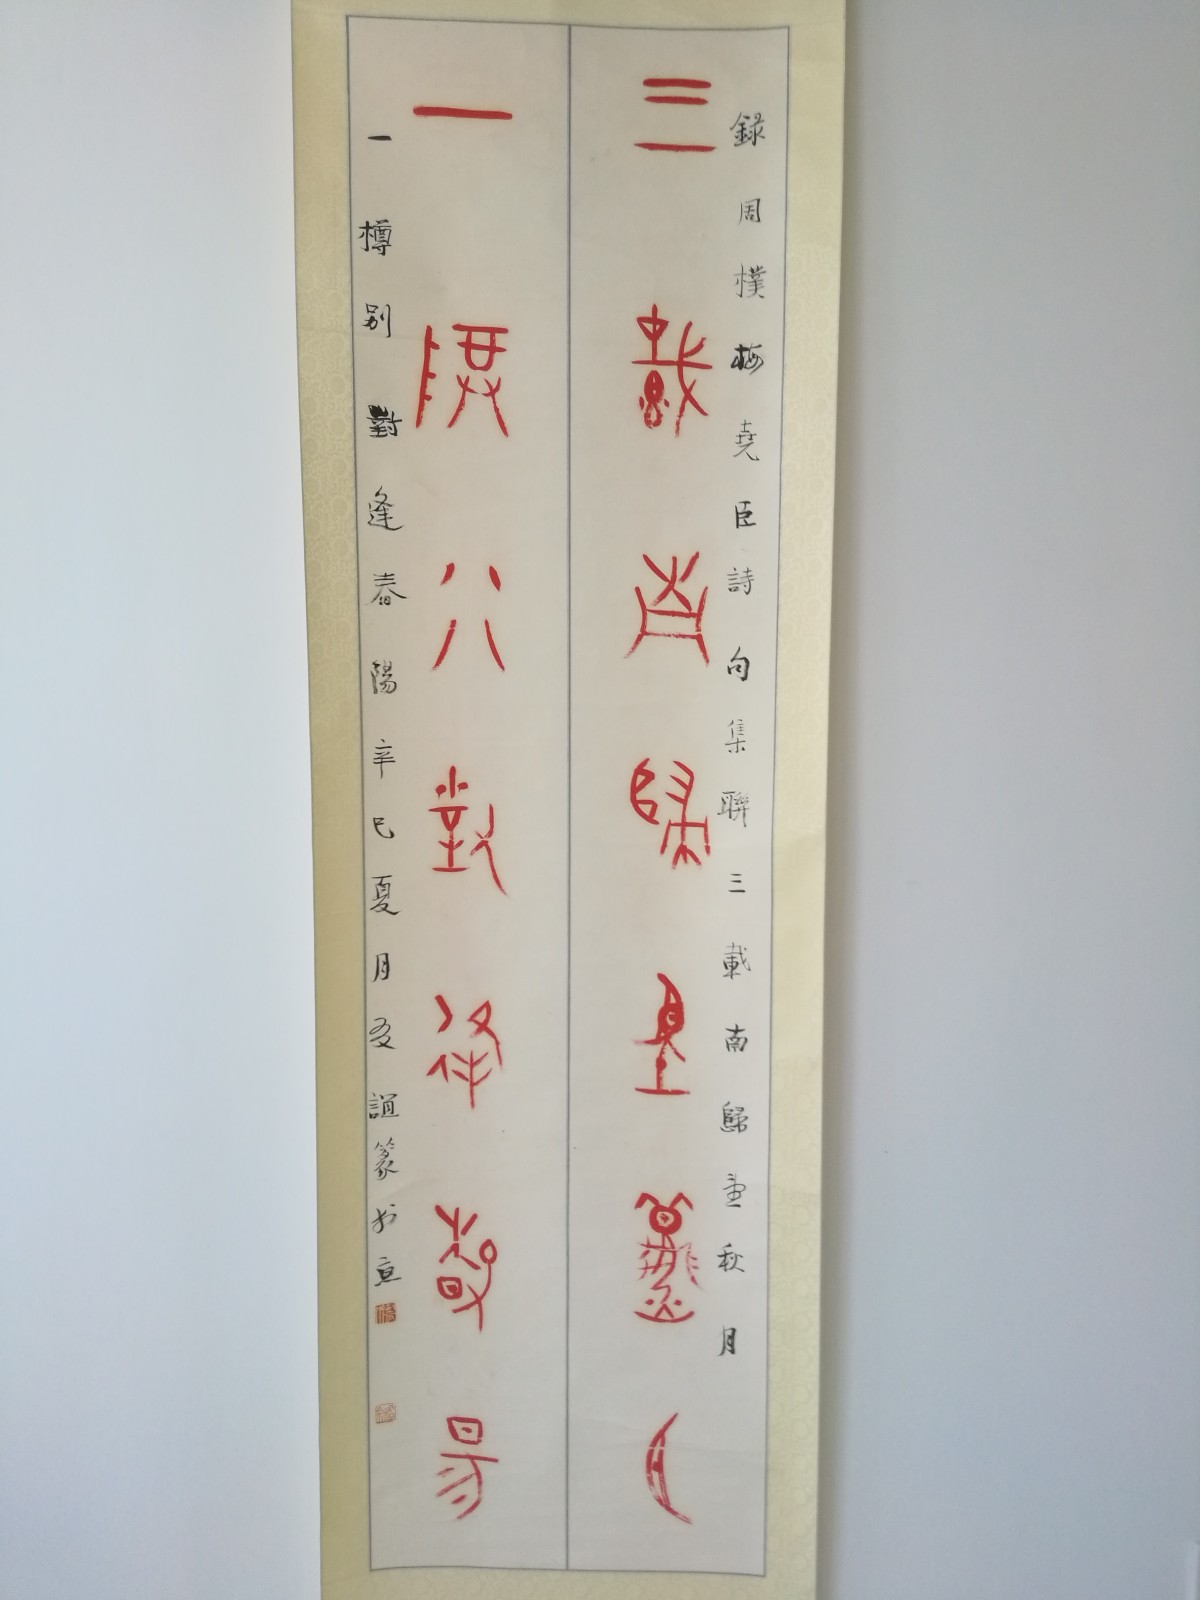 錄周樸梅堯臣詩句集聯三載南歸𦣠秋月
三載南歸𦣠秋月
一尊八對逢春昜
一樽别對逢春陽辛巳夏月友誼篆於京